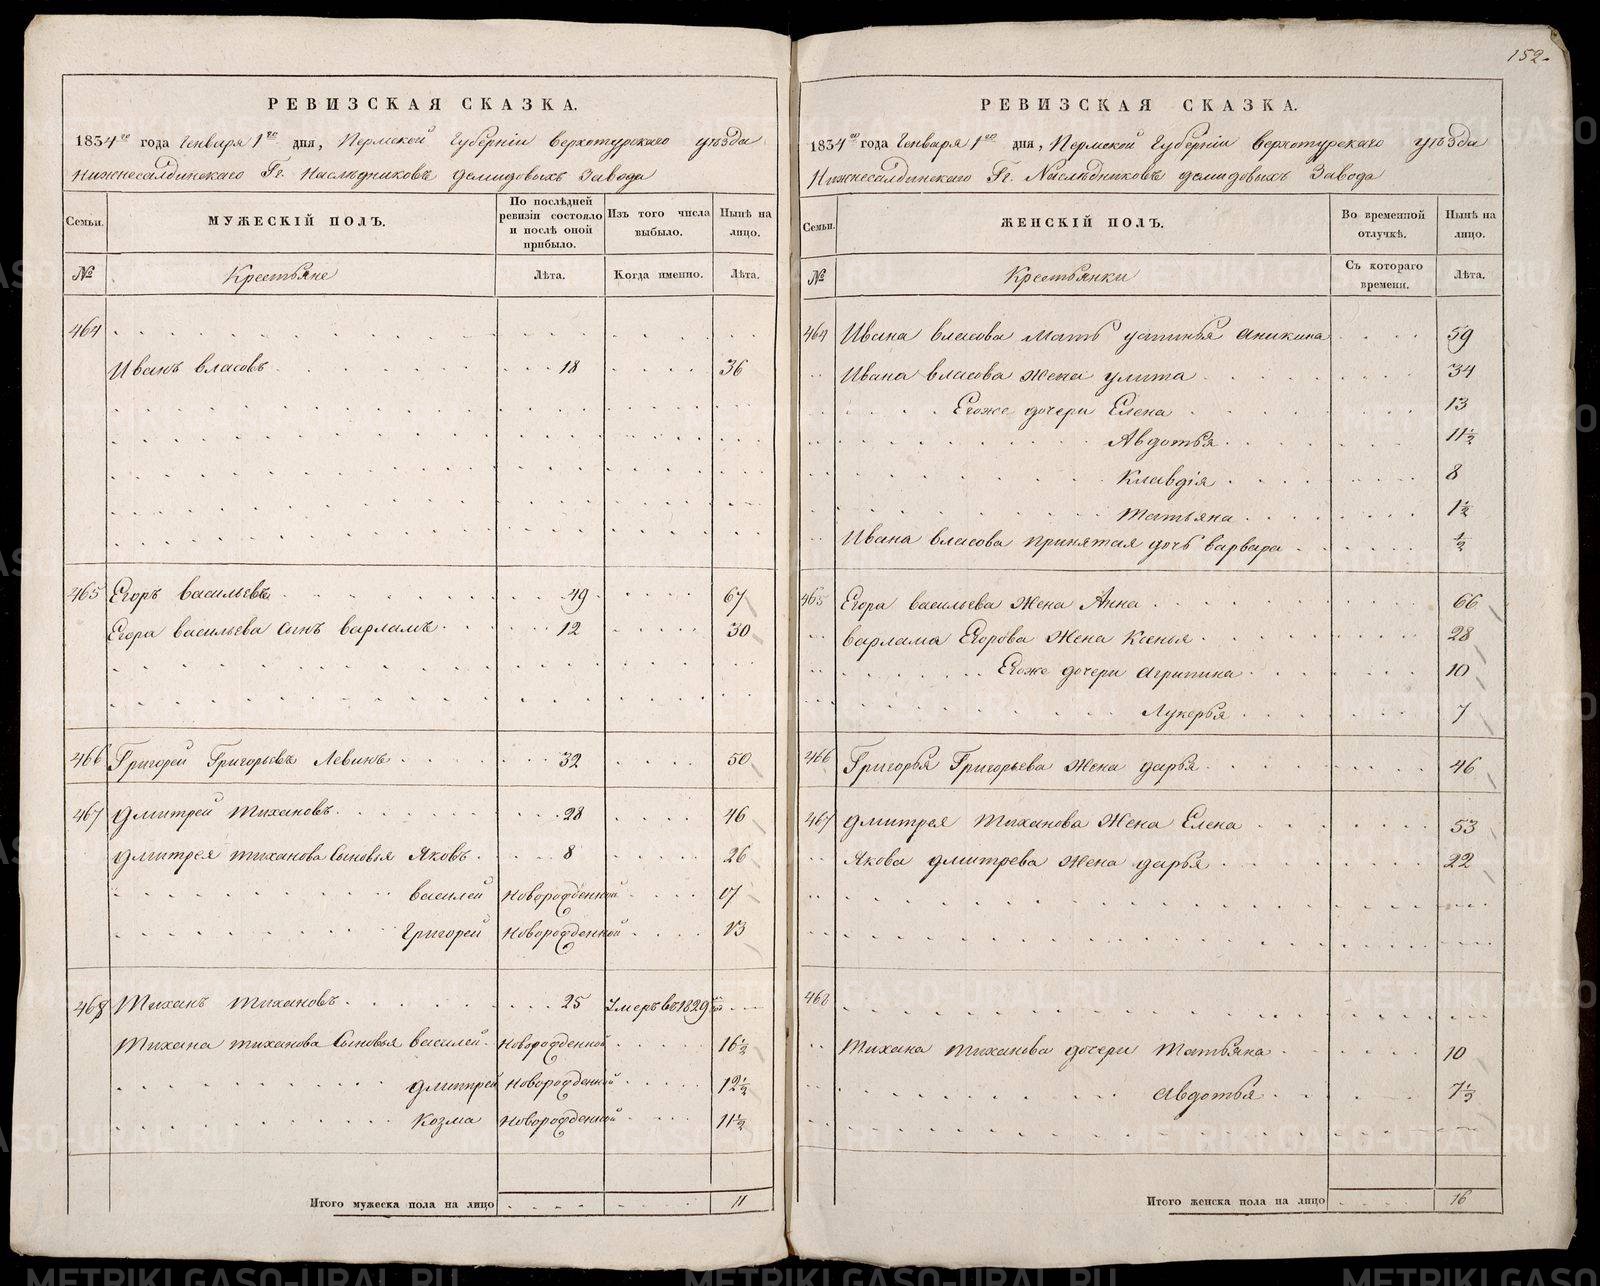 152.
РЕВИЗСКАЯ СКАЗКА.
1834го года Генваря 1го дня, Пермской Губерніи Верхотурскаго уѣзда
Нижнесалдинскаго Гг. Наслѣдниковъ Демидовыхъ Завода
Семьи. МУЖЕСКІЙ ПОЛЪ. По послѣдней ревизіи состояло и послѣ оной прибыло. Изъ того числа выбыло. Нынѣ на лицо.
№ Крестьяне Лѣта. Когда именно. Лѣта.
464
Иванъ Власовъ 18 36
465 Егоръ Васильевъ 49 67
Егора Васильева сынъ Варламъ 12 30
466 Григорей Григорьевъ Левинъ 32 50
467 Дмитрей Тихановъ 28 46
Дмитрея Тиханова Сыновья Яковъ 8 26
Василей Новорожденной 17
Григорей Новорожденной 13
468 Тиханъ Тихановъ 25 Умеръ въ 1829
Тихана Тиханова Сыновья Василей Новорожденной 16½
Дмитрей Новорожденной 12½
Козма Новорожденной 11½
Итого мужеска пола на лицо 11
РЕВИЗСКАЯ СКАЗКА.
1834го года Генваря 1го дня, Пермской Губерніи Верхотурскаго уѣзда
Нижнесалдинскаго Гг. Наслѣдниковъ Демидовыхъ Завода
Семьи. ЖЕНСКІЙ ПОЛЪ. Во временной отлучкѣ. Нынѣ на лицо.
№ Крестьянки Съ котораго времени. Лѣта.
464 Ивана Власова Мать Устинья Аникина 59
Ивана Власова Жена Улита 34
Егоже дочери Елена 13
Авдотья 11½
Клавдія 8
Татьяна 1½
Ивана Власова принятая дочь Варвара ½
465 Егора Васильева Жена Анна 66
Варлама Егорова Жена Ксенья 28
Егоже дочери Агрипина 10
Лукерья 7
466 Григорья Григорьева Жена Дарья 46
467 Дмитрея Тиханова Жена Елена 53
Якова Дмитрева Жена Дарья 22
468
Тихана Тиханова дочери Татьяна 10
Авдотья 7½
Итого женска пола на лицо 16
METRIKI.GASO-URAL.RU